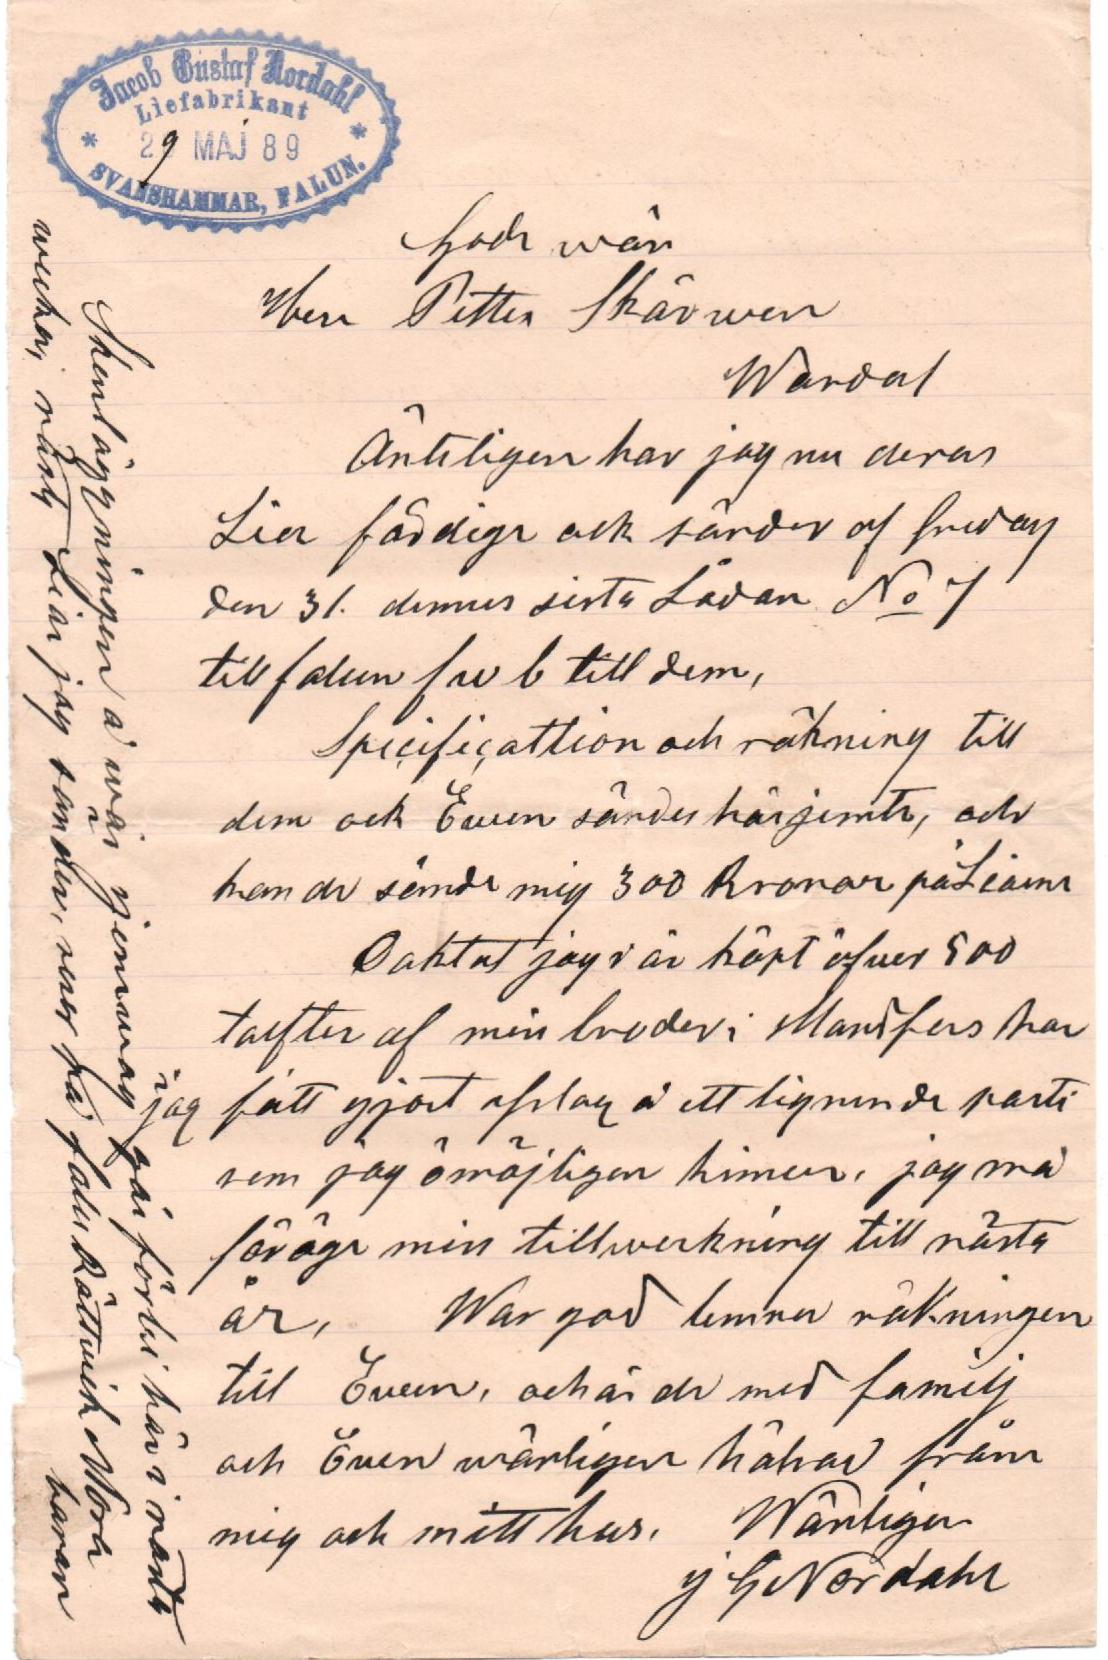 Jacob Gustaf Nordahl
Liefabrikant
29 MAJ 89
SVANSHAMMAR, FALUN.
Gode wän
Herr Petter Skärwen
Wärdal
Äntligen har jag nu deras
Liar färdiga och sänder af fredag
den 31. dennes sista Lådan No 7
till falun fr b till dem,
Specificattion och räkning till
dem ock Even sändes härjemte, och
han de sände mig 300 Kronor på Liarne
Oaktat jag i år köpt öfver 500
tolfter af min broder i Mandfors har
jag fått gjort afslag å ett lignende parti
som jag ömöjligen hinner, jag må
föröge min tillwerkning till nästa
år, War god lemna räkningen
till Even, och är de med familj
och Even wänligen hälsad från
mig och mitt hus. Wänligen
J G Nordahl
Stenläggningen å wår jernwäg går förbi här i nästa
wecka, nästa Liar jag sänder, sker på falu Rättwick Mora
banan